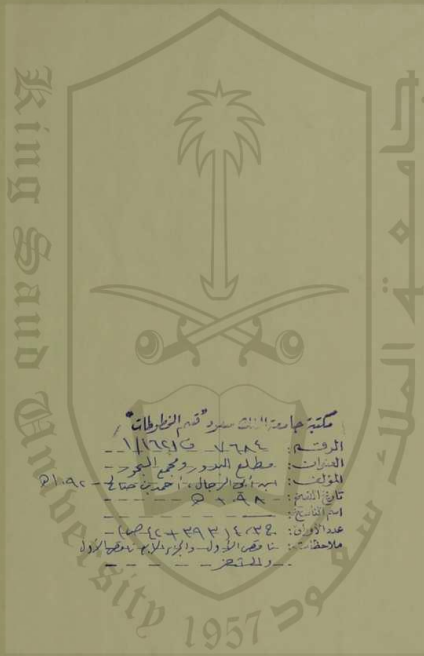 King Saud University
جامعة الملك سعود
1957
مكتبة جامعة الملك سعود "قسم المخطوطات"
الرقم: ٧٦٨٤ ف ١/١٦٢١
العنوان: مطلع البدور ومجمع البحور
المؤلف: ابن أبي الرجال، أحمد بن صالح - ١٠٩٢هـ
تاريخ النسخ: ١٠٩٨هـ
اسم الناسخ:
عدد الأوراق:
ملاحظات: ناقص الأول والجزء ناقص الأول